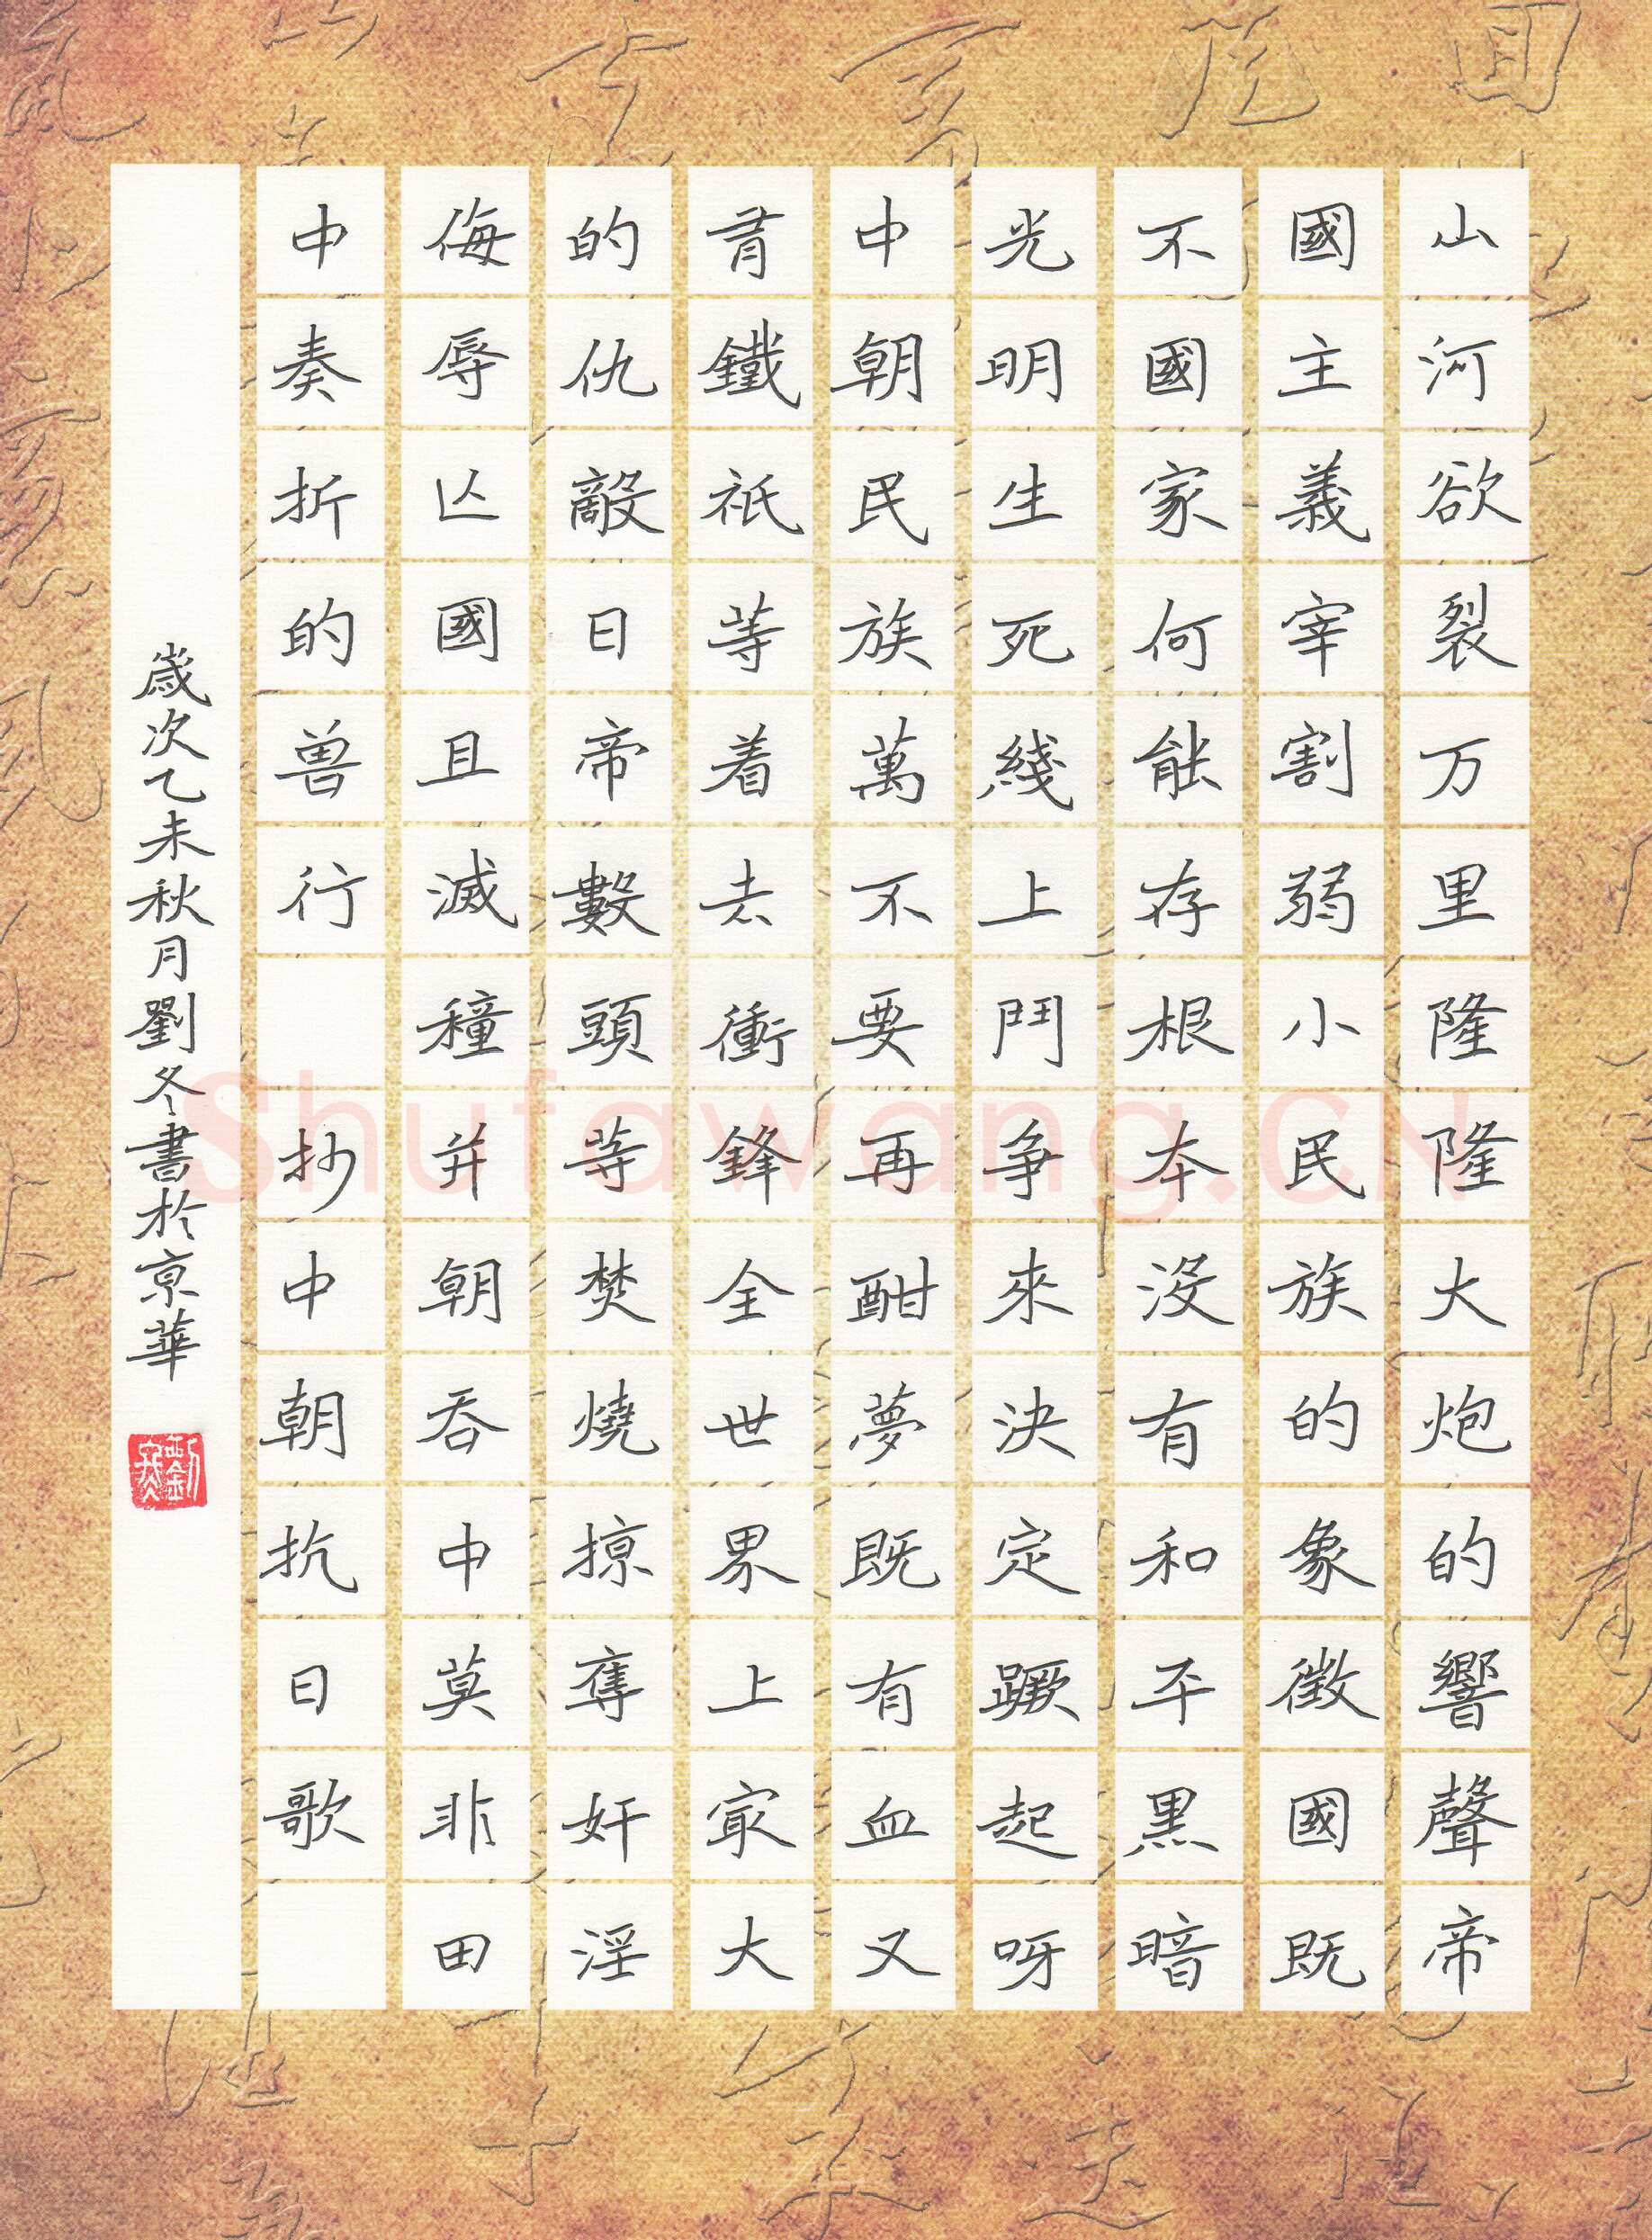 山河欲裂万里隆隆大炮的響聲帝
國主義宰割弱小民族的象徵國既
不國家何能存根本没有和平黑暗
光明生死綫上鬥争來決定蹶起呀
中朝民族萬不要再酣夢既有血又
有鐵祇等着去衝鋒全世界上最大
的仇敵日帝數頭等焚燒掠奪奸淫
侮辱亡國且滅種并朝吞中莫非田
中奏折的兽行抄中朝抗日歌
歲次乙未秋月劉冬書於京華
劉冬
Shufawang.CN